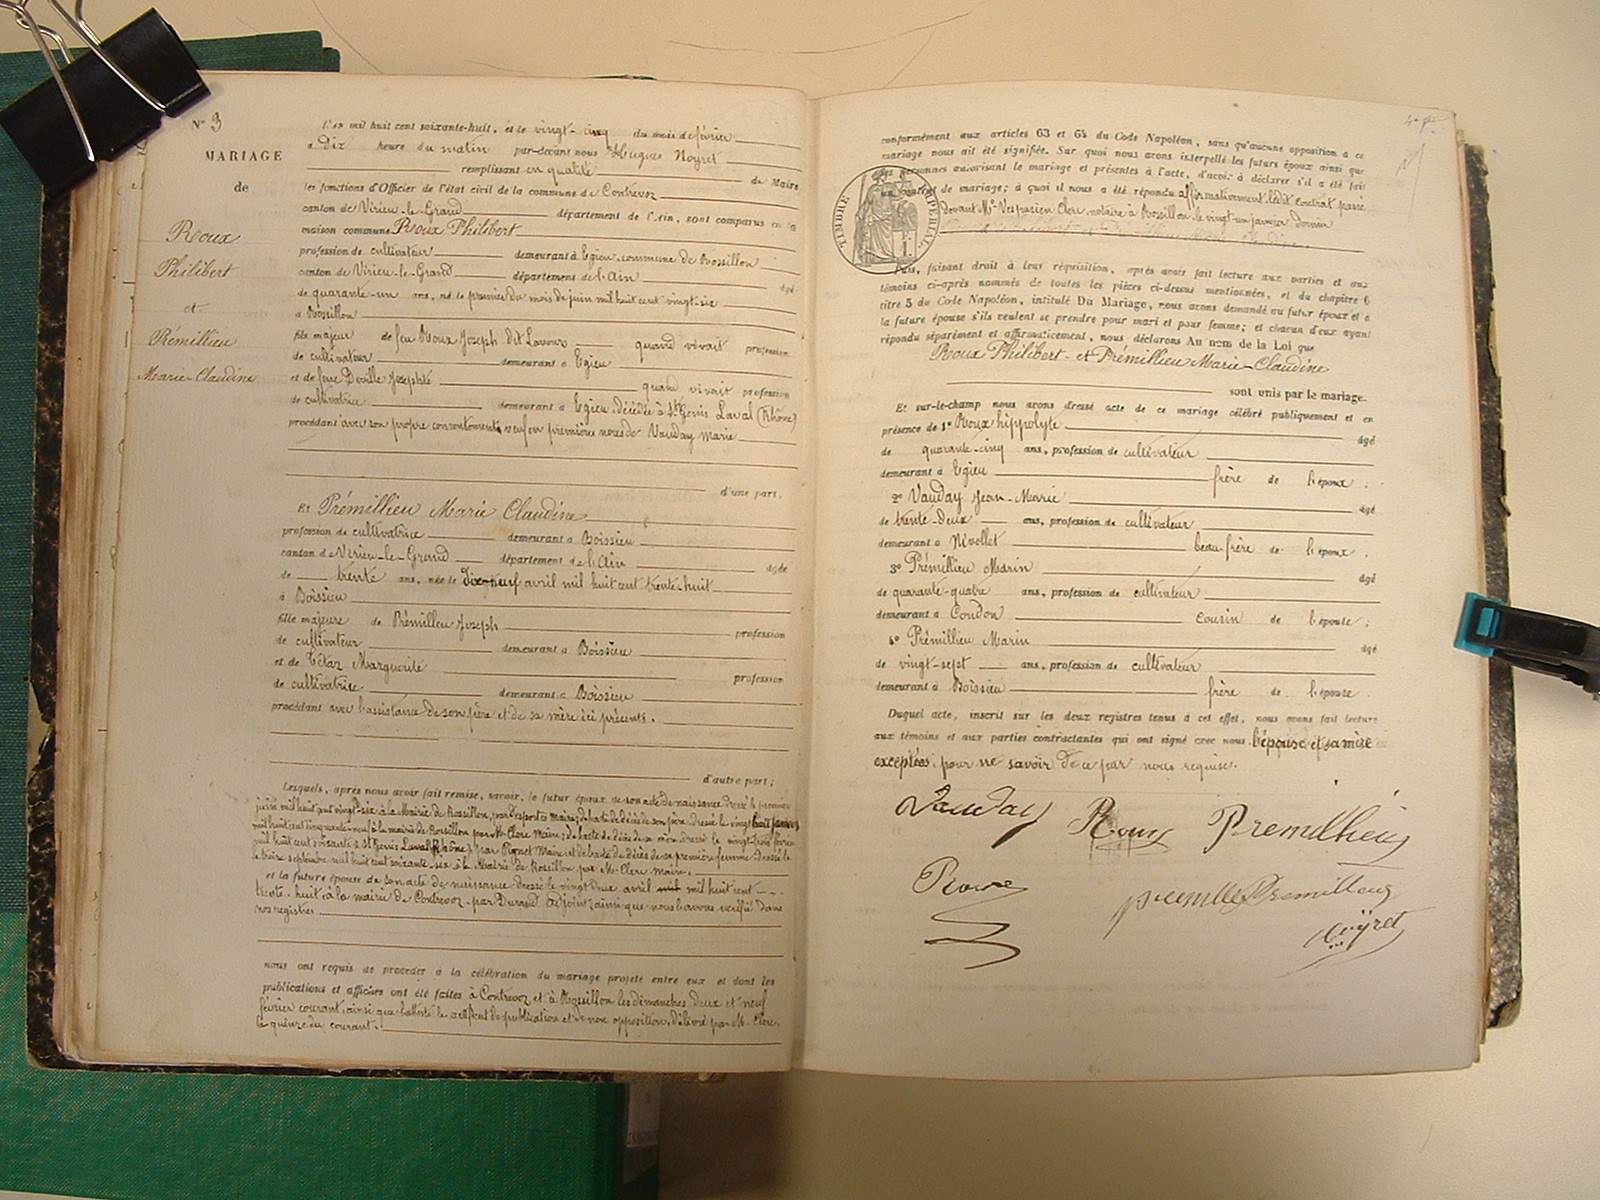 N° 3
MARIAGE
de
Roux
Philibert
et
Prémillieu
Marie-Claudine
L'an mil huit cent soixante-huit, et le vingt-cinq du mois de février
à Dix heure du matin par-devant nous Hugues Noyret
remplissant en qualité de Maire
les fonctions d'Officier de l'état civil de la commune de Contrevoz
canton de Virieu-le-Grand département de l'Ain, sont comparus en la
maison commune Roux Philibert
profession de cultivateur demeurant à Egieu, commune de Rossillon
canton de Virieu-le-Grand département de l'Ain âgé
de quarante-un ans, né le premier du mois de juin mil huit cent vingt-six
à Rossillon
fils majeur de feu Roux Joseph dit quand vivait profession
de cultivateur demeurant à Egieu
et de feue Deville Josephte quand vivait profession
de cultivatrice demeurant à Egieu, décédée à St Genis Laval (Rhône)
procédant avec son propre consentement, veuf en premières noces de Vauday Marie
d'une part.
Et Prémillieu Marie Claudine
profession de cultivatrice demeurant à Boissieu
canton de Virieu-le-Grand département de l'Ain âgée
de trente ans, née le Dix-neuf avril mil huit cent trente-huit
à Boissieu
fille majeure de Prémillieu Joseph profession
de cultivateur demeurant à Boissieu
et de Marguerite profession
de cultivatrice demeurant à Boissieu
procédant avec l'assistance de son père et de sa mère ici présents.
d'autre part;
Lesquels, après nous avoir fait remise, savoir, le futur époux de son acte de naissance dressé le premier
juin mil huit cent vingt-six à la Mairie de Rossillon, par Maire; de l'acte de décès de son père, dressé le vingt huit janvier
mil huit cent cinquante-neuf à la mairie de Rossillon par Mr Clerc Maire; de l'acte de décès de sa mère dressé le vingt-trois février
mil huit cent soixante à St Genis Laval (Rhône) par Maire et de l'acte de décès de sa première femme dressé le
treize septembre mil huit cent soixante-six à la Mairie de Rossillon par Mr Clerc maire.
et la future épouse de son acte de naissance dressé le vingt deux avril mil huit cent
trente-huit à la mairie de Contrevoz par adjoint, ainsi que nous l'avons vérifié dans
nos registres
nous ont requis de procéder à la célébration du mariage projeté entre eux et dont les
publications et affiches ont été faites à Contrevoz et à Rossillon les dimanches deux et neuf
février courant, ainsi que l'atteste le certificat de publication et de non opposition, délivré par Mr Clerc,
le quinze du courant.
conformément aux articles 63 et 64 du Code Napoléon, sans qu'aucune opposition à ce
mariage nous ait été signifiée. Sur quoi nous avons interpellé les futurs époux ainsi que
les personnes autorisant le mariage et présentes à l'acte, d'avoir à déclarer s'il a été fait
un contrat de mariage; à quoi il nous a été répondu affirmativement, ledit contrat passé
devant Me Vespasien Clerc, notaire à Rossillon, le vingt-un janvier dernier
TIMBRE IMPÉRIAL
Puis, faisant droit à leur réquisition, après avoir fait lecture aux parties et aux
témoins ci-après nommés de toutes les pièces ci-dessus mentionnées, et du chapitre 6
titre 5 du Code Napoléon, intitulé Du Mariage, nous avons demandé au futur époux et à
la future épouse s'ils veulent se prendre pour mari et pour femme; et chacun d'eux ayant
répondu séparément et affirmativement, nous déclarons Au nom de la Loi que
Roux Philibert et Prémillieu Marie-Claudine
sont unis par le mariage.
Et sur-le-champ nous avons dressé acte de ce mariage célébré publiquement et en
présence de 1° Roux hippolyte âgé
de quarante-cinq ans, profession de cultivateur
demeurant à Egieu frère de l'époux;
2° Vauday Jean-Marie âgé
de trente-deux ans, profession de cultivateur
demeurant à Nivollet beau-frère de l'époux.
3° Prémillieu Marin âgé
de quarante-quatre ans, profession de cultivateur
demeurant à Condon cousin de l'épouse;
4° Prémillieu Marin âgé
de vingt-sept ans, profession de cultivateur
demeurant à Boissieu frère de l'épouse
Duquel acte, inscrit sur les deux registres tenus à cet effet, nous avons fait lecture
aux témoins et aux parties contractantes qui ont signé avec nous l'épouse et sa mère
exceptées, pour ne savoir de ce par nous requise.
Vauday Roux Premillieu
Roux
Premillieux
Noyret